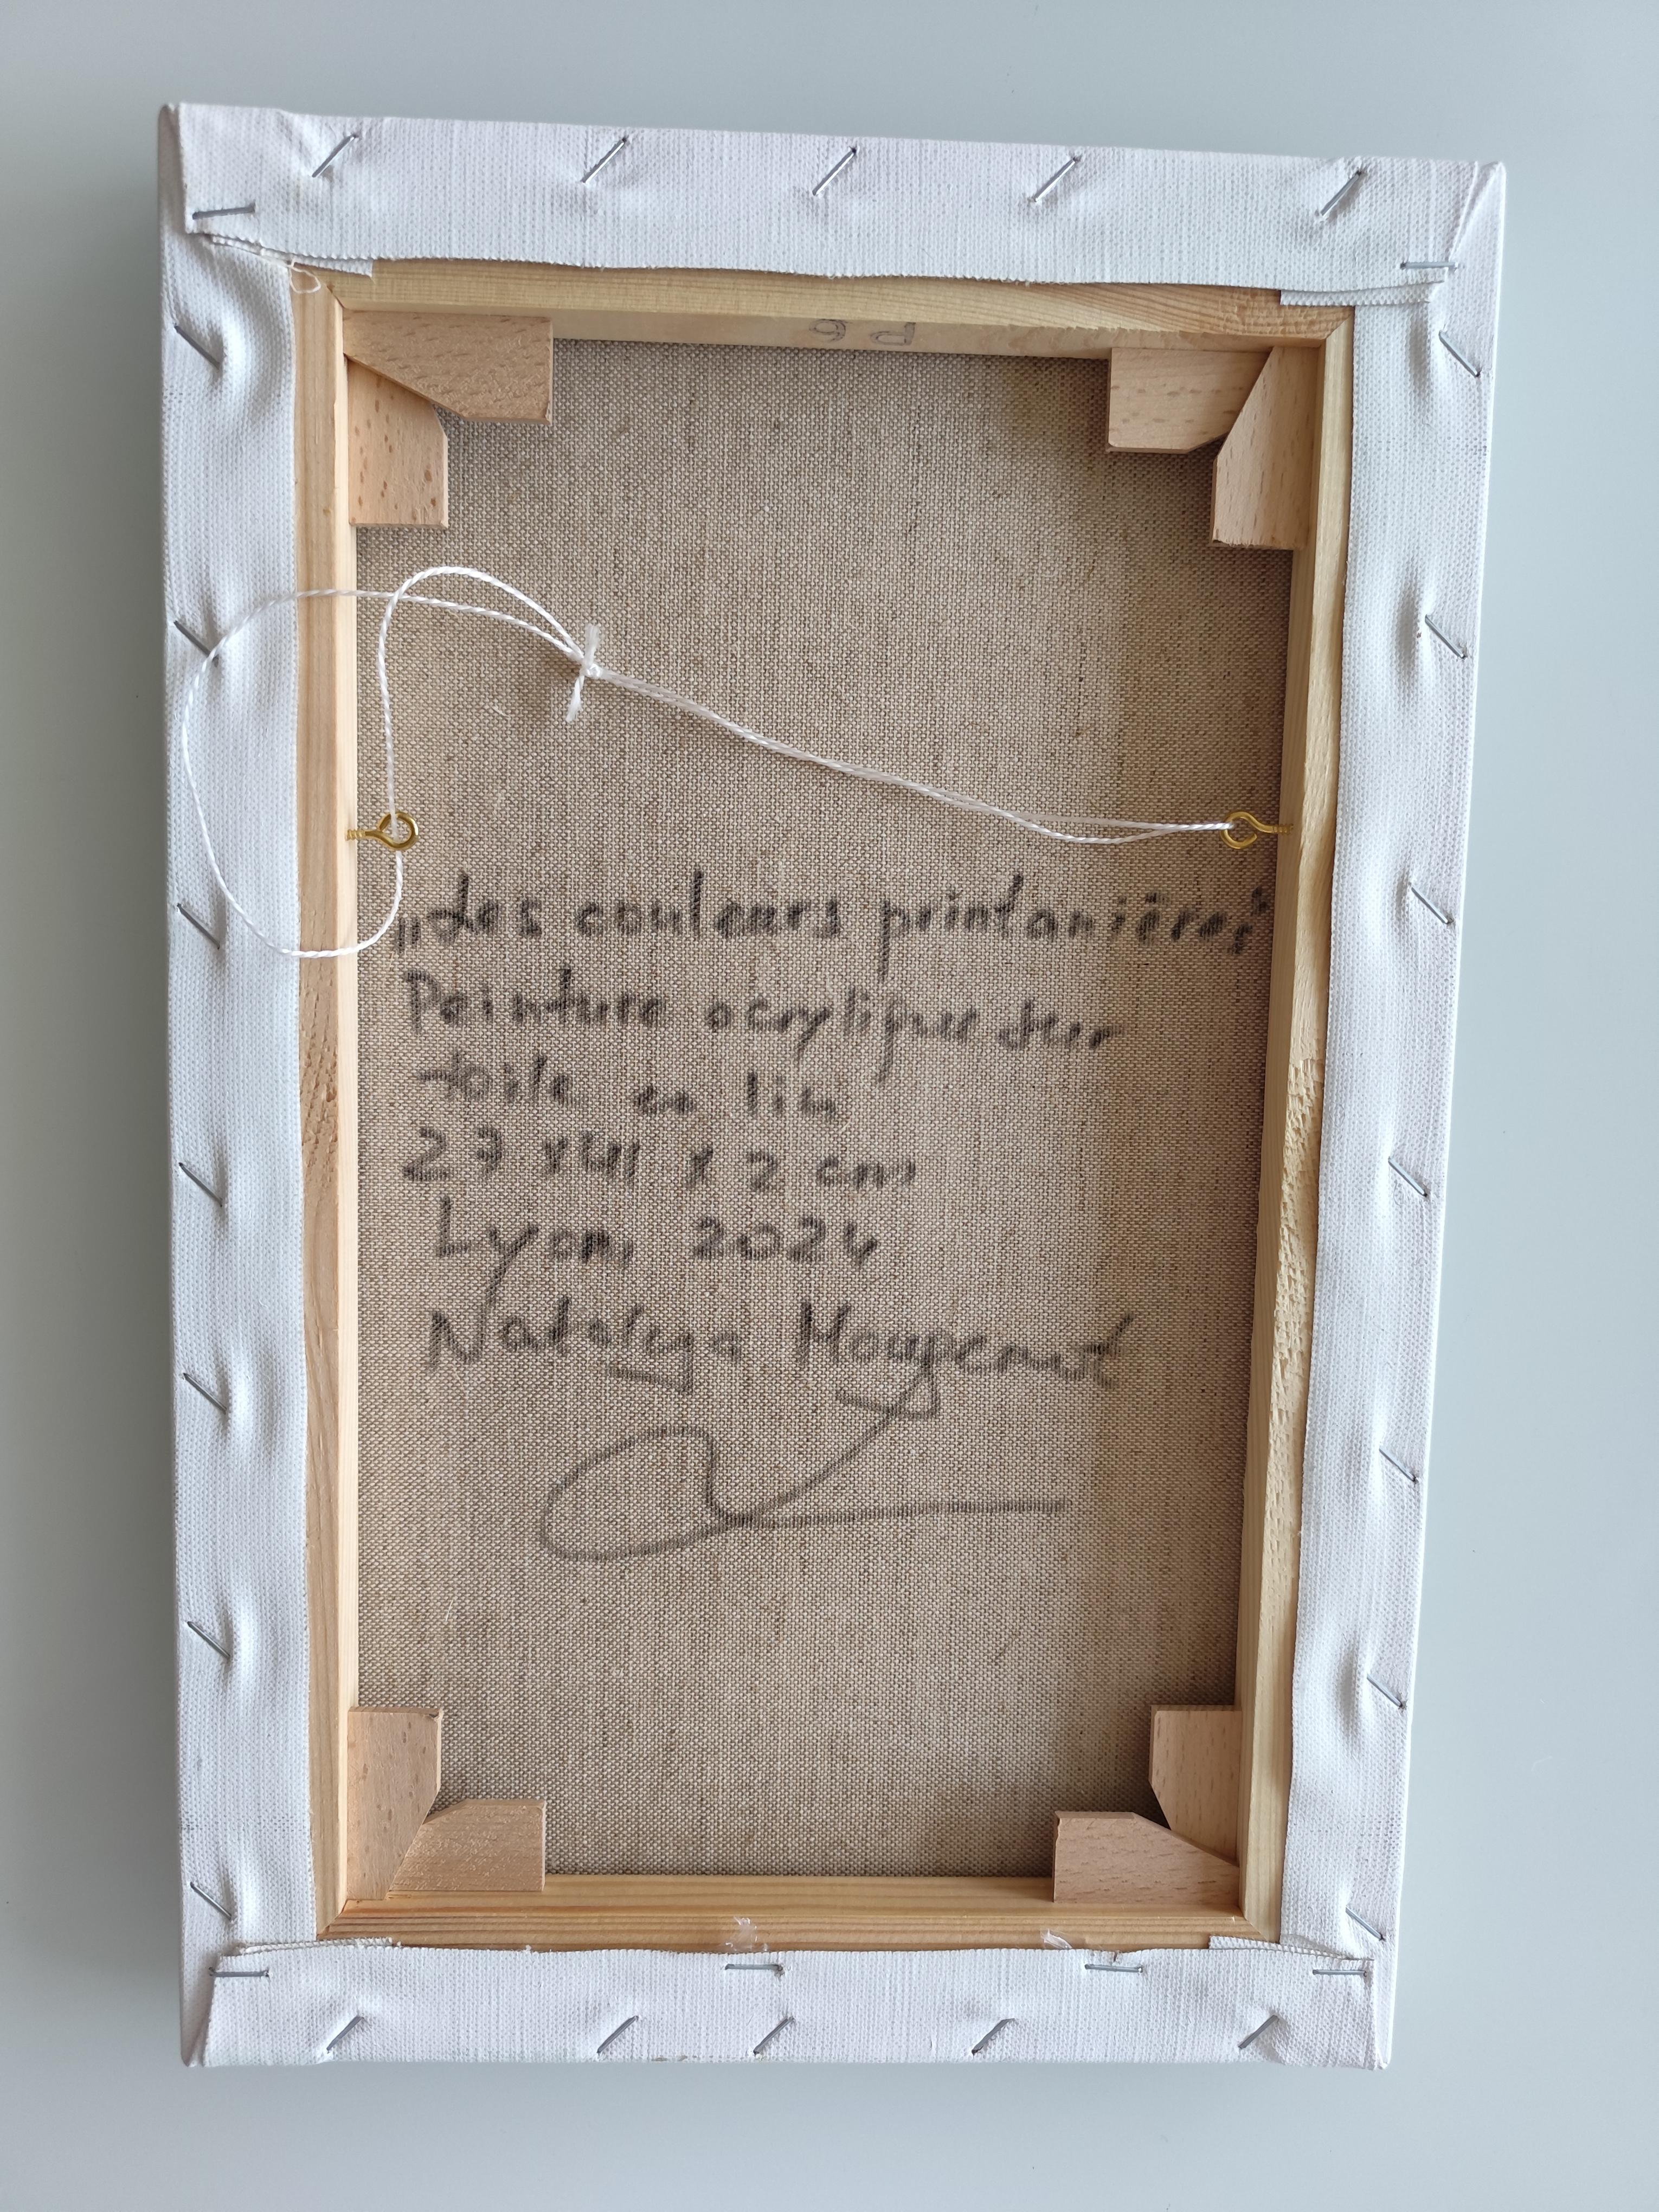 6 P
„Les couleurs printanières"
Peinture acrylique sur
toile en lin
27 x 41 x 2 cm
Lyon, 2024
Natalya Mougenot